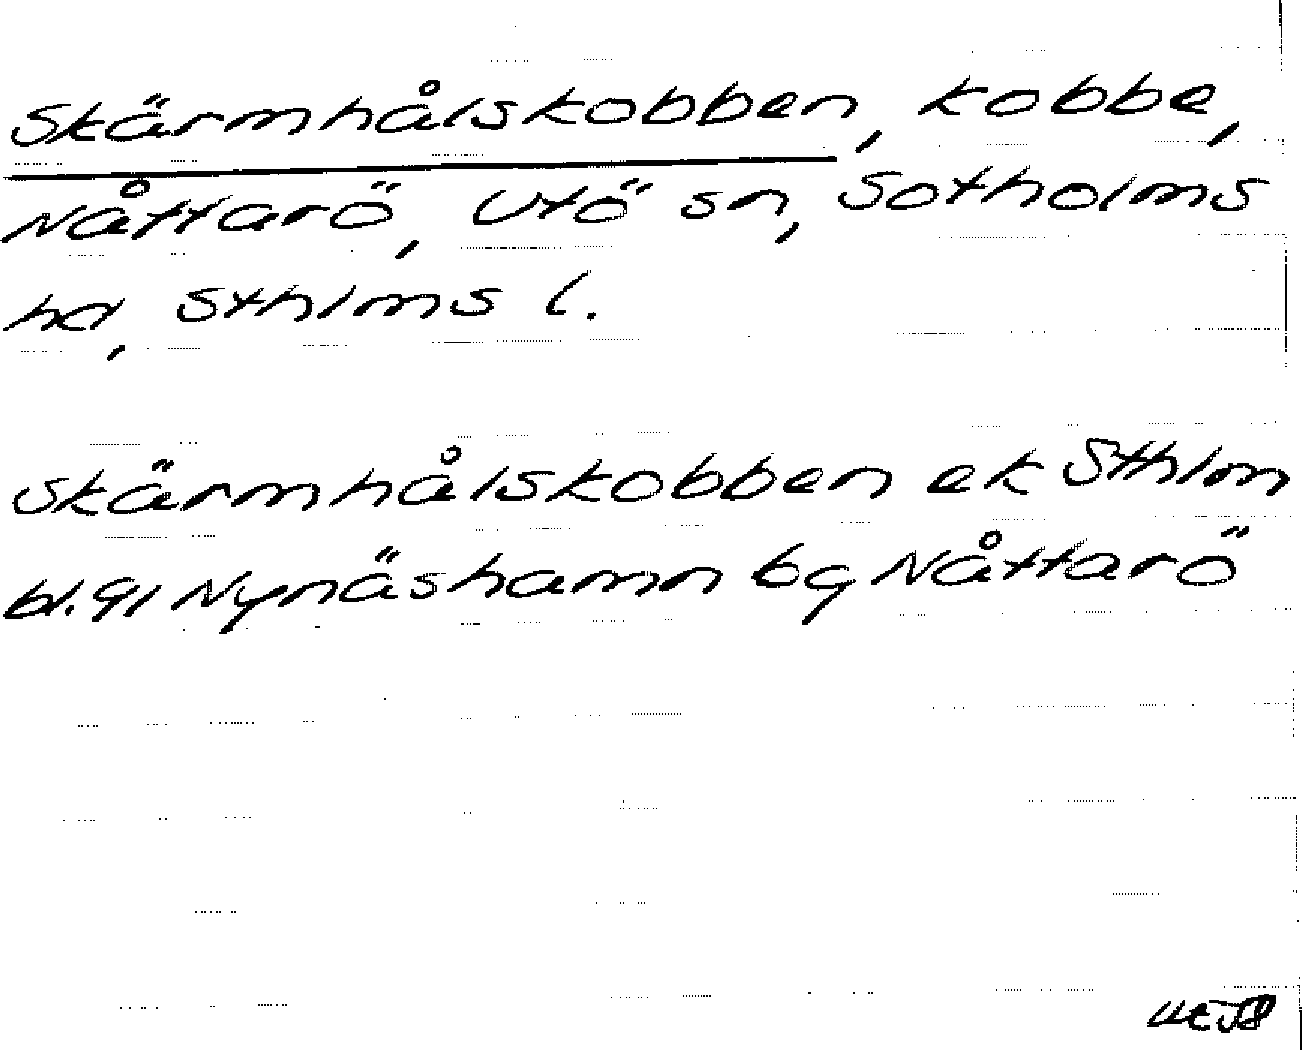 Skärmhålskobben, kobbe,
Nåttarö, Utö sn, Sotholms
hd, Sthlms l.
Skärmhålskobben ek Sthlm
bl. 91 Nynäshamn bg Nåttarö